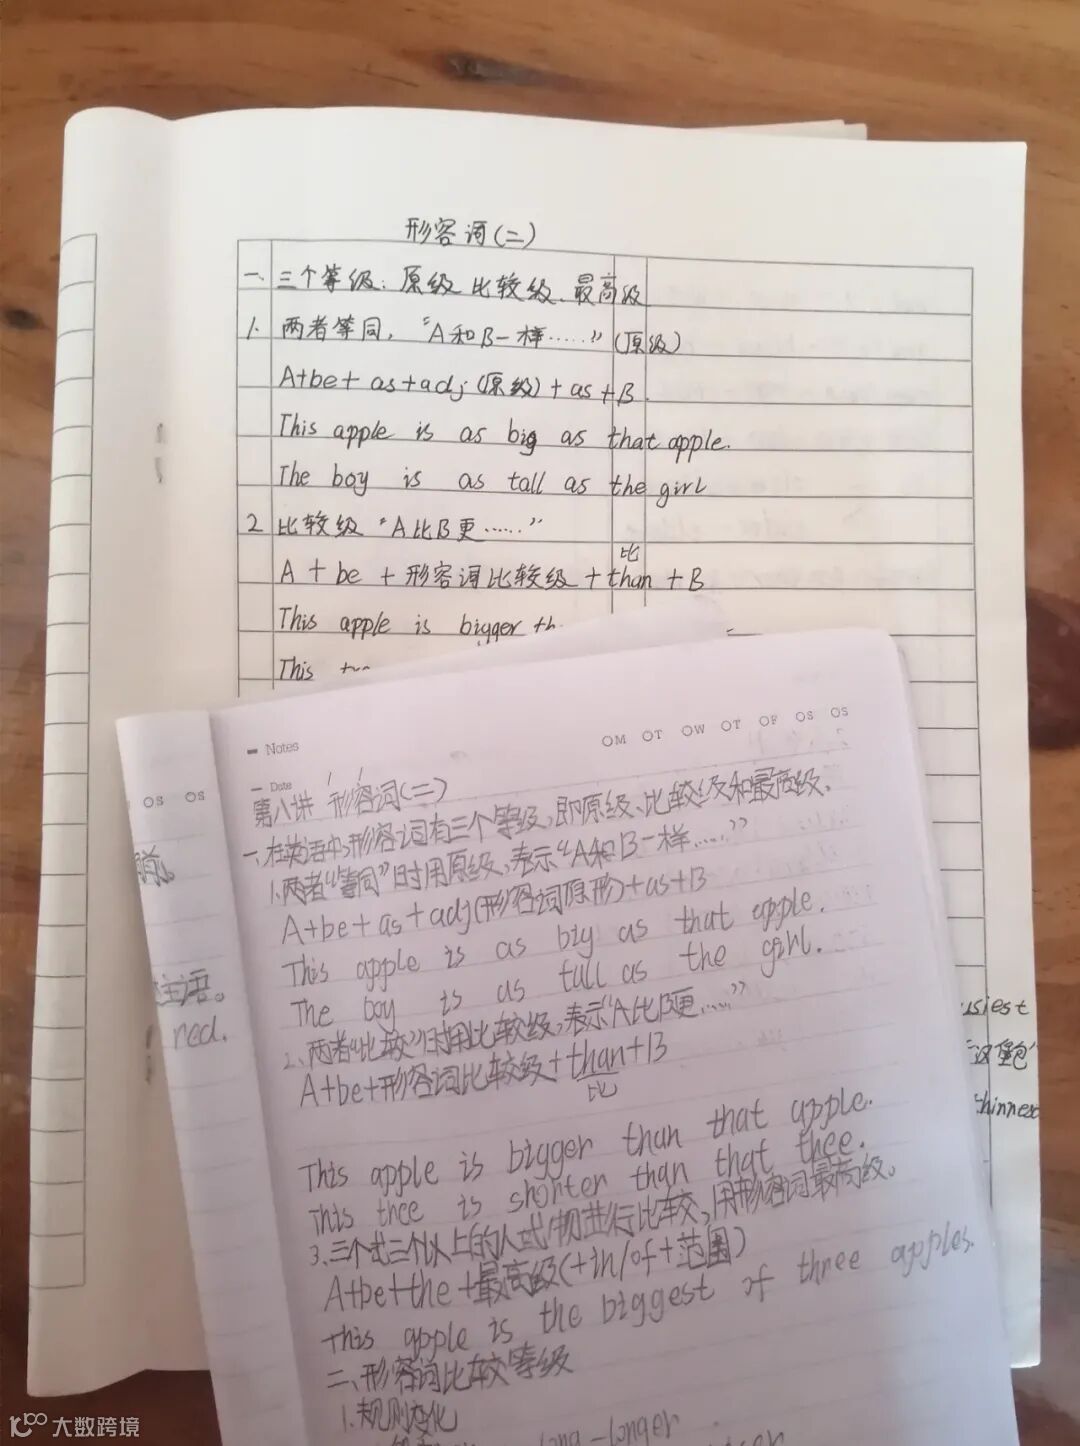 形容词(二)
一. 三个等级: 原级 比较级、最高级
1. 两者等同, "A和B一样……" (原级)
A+be+as+adj(原级)+as+B.
This apple is as big as that apple.
The boy is as tall as the girl
2 比较级 "A比B更……"
比
A + be + 形容词比较级 + than + B
This apple is bigger th
This
Notes
OM OT OW OT OF OS OS
Date
第八讲 形容词(二)
一、在英语中,形容词有三个等级,即原级、比较级和最高级.
1.两者"等同"时用原级,表示"A和B一样……"
A+be+as+adj(形容词原形)+as+B
This apple is as big as that apple.
The boy is as tall as the girl.
2、两者"比较"时用比较级,表示"A比B更……"
A+be+形容词比较级+than+B
比
This apple is bigger than that apple.
This thee is shorter than that thee.
3、三个或三个以上的人或物进行比较,用形容词最高级。
A+be+the+最高级(+in/of+范围)
This apple is the biggest of three apples.
二、形容词比较等级
1.规则变化
long-longer
OS OS
主语。
red.
siest
"汉堡包"
thinnest
大数跨境